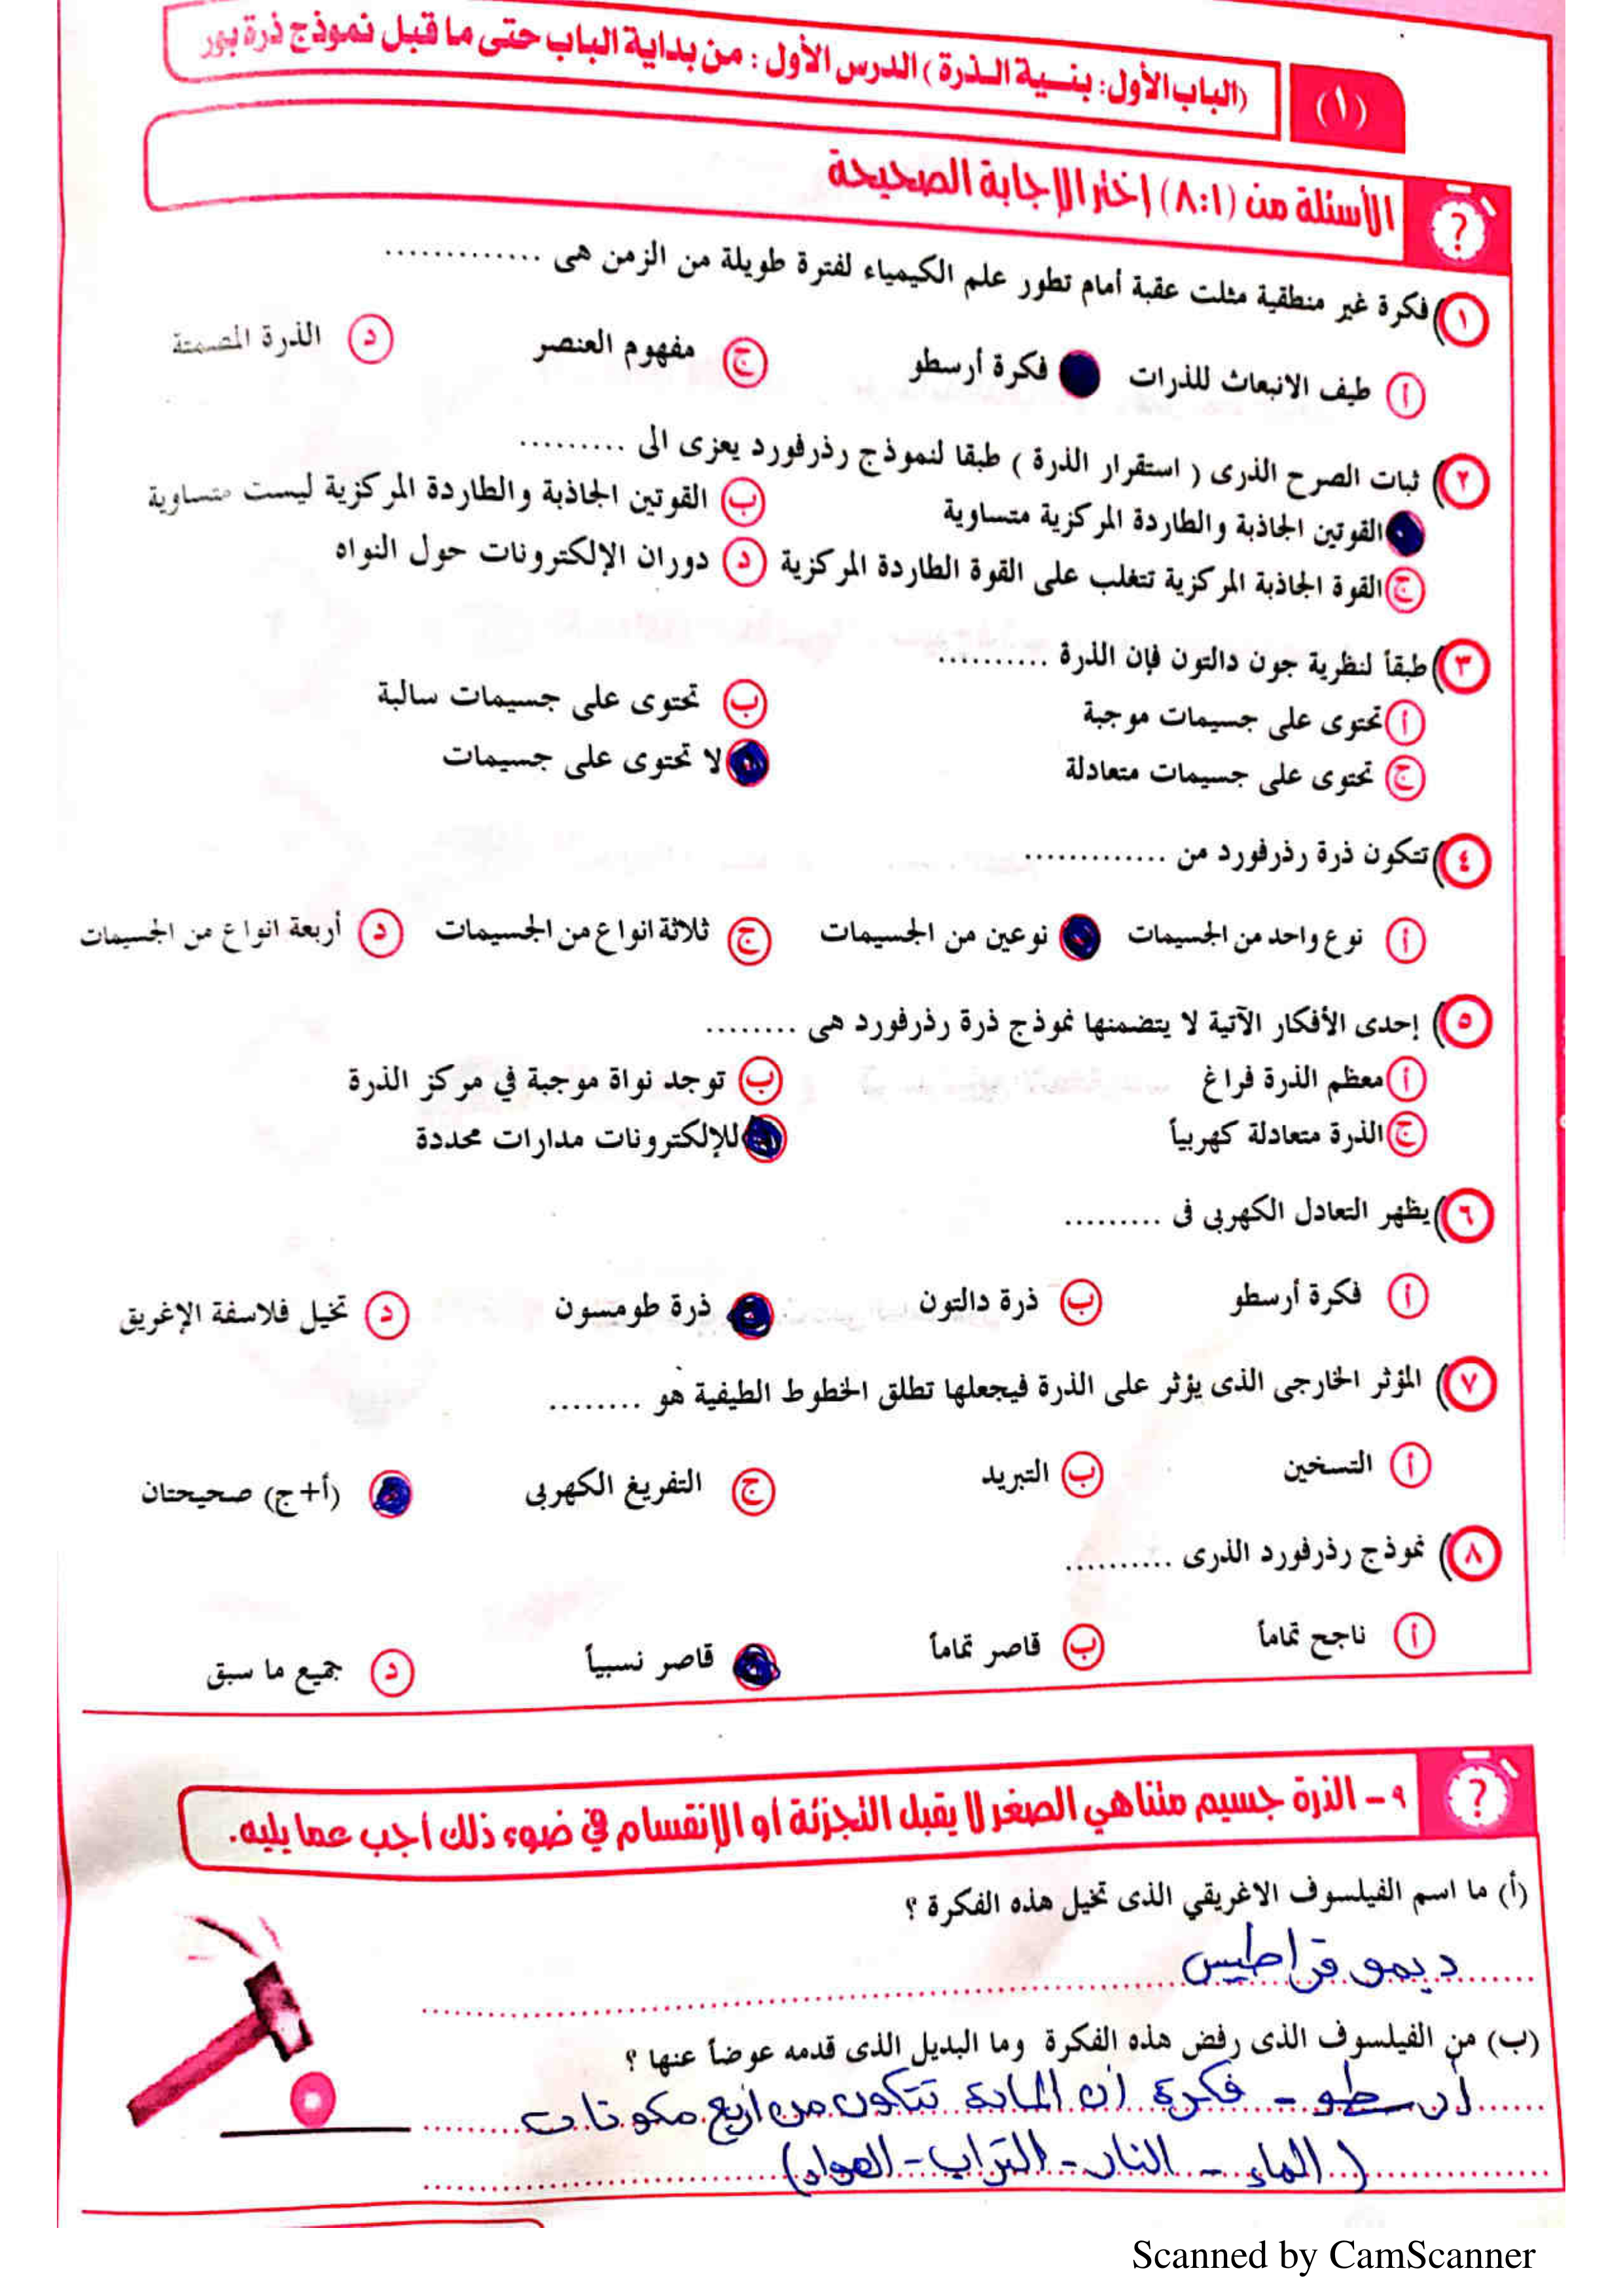 (١)
(الباب الأول: بنـيـة الـذرة) الدرس الأول: من بداية الباب حتى ما قبل نموذج ذرة بور
الأسئلة من (٨:١) إختر الإجابة الصحيحة
١) فكرة غير منطقية مثلت عقبة أمام تطور علم الكيمياء لفترة طويلة من الزمن هى .............
أ طيف الانبعاث للذرات فكرة أرسطو ج مفهوم العنصر د الذرة المصمتة
٢) ثبات الصرح الذرى ( استقرار الذرة ) طبقا لنموذج رذرفورد يعزى الى .........
القوتين الجاذبة والطاردة المركزية متساوية ب القوتين الجاذبة والطاردة المركزية ليست متساوية
ج القوة الجاذبة المركزية تتغلب على القوة الطاردة المركزية د دوران الإلكترونات حول النواه
٣) طبقاً لنظرية جون دالتون فإن الذرة ..........
أ تحتوى على جسيمات موجبة ب تحتوى على جسيمات سالبة
ج تحتوى على جسيمات متعادلة لا تحتوى على جسيمات
٤) تتكون ذرة رذرفورد من .............
أ نوع واحد من الجسيمات نوعين من الجسيمات ج ثلاثة انواع من الجسيمات د أربعة انواع من الجسيمات
٥) إحدى الأفكار الآتية لا يتضمنها نموذج ذرة رذرفورد هى ........
أ معظم الذرة فراغ ب توجد نواة موجبة في مركز الذرة
ج الذرة متعادلة كهربياً للإلكترونات مدارات محددة
٦) يظهر التعادل الكهربى فى .........
أ فكرة أرسطو ب ذرة دالتون ذرة طومسون د تخيل فلاسفة الإغريق
٧) المؤثر الخارجى الذى يؤثر على الذرة فيجعلها تطلق الخطوط الطيفية هو ........
أ التسخين ب التبريد ج التفريغ الكهربى (أ+ج) صحيحتان
٨) نموذج رذرفورد الذرى ..........
أ ناجح تماماً ب قاصر تماماً قاصر نسبياً د جميع ما سبق
٩ - الذرة جسيم متناهي الصغر لا يقبل التجزئة أو الإنقسام في ضوء ذلك أجب عما يليه.
(أ) ما اسم الفيلسوف الاغريقي الذى تخيل هذه الفكرة ؟
ديموقراطيس
(ب) من الفيلسوف الذى رفض هذه الفكرة وما البديل الذى قدمه عوضاً عنها ؟
أرسطو - فكرة أن المادة تتكون من أربع مكونات
(الماء - النار - التراب - الهواء)
Scanned by CamScanner